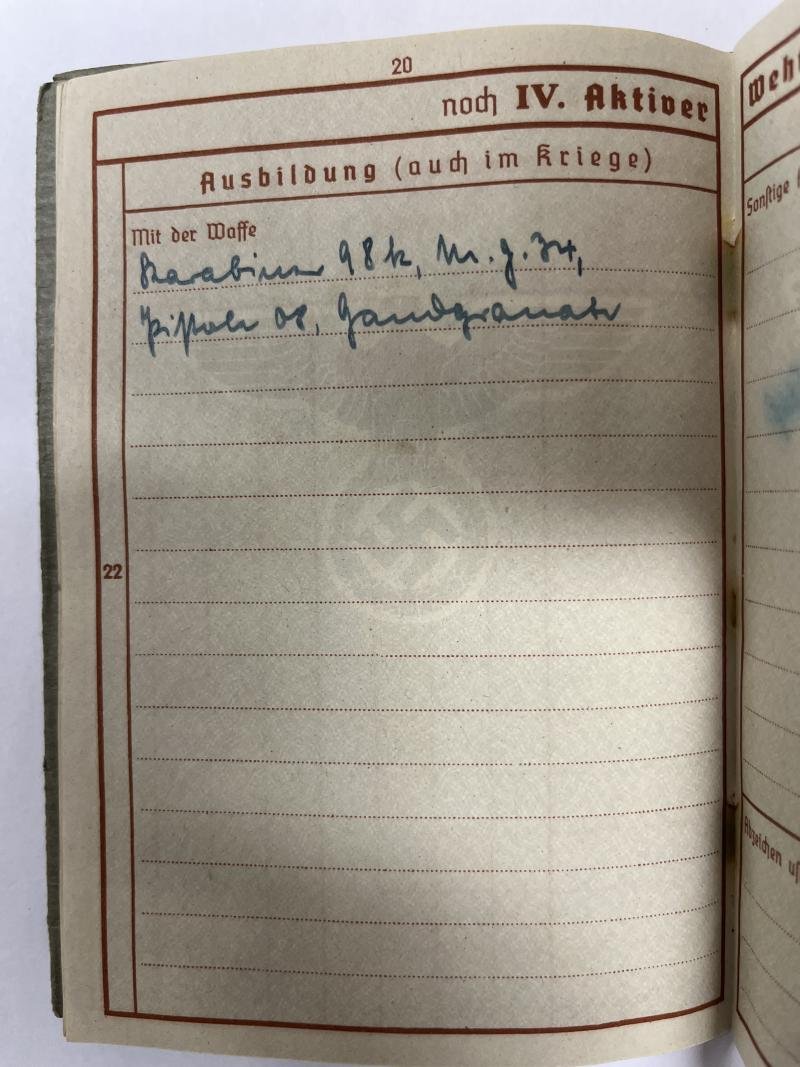 20
noch IV. Aktiver
Ausbildung (auch im Kriege)
Mit der Waffe
Karabiner 98 k, M.g. 34,
Pistole 08, Handgranate
22
Weh
Sonstige
Abzeichen